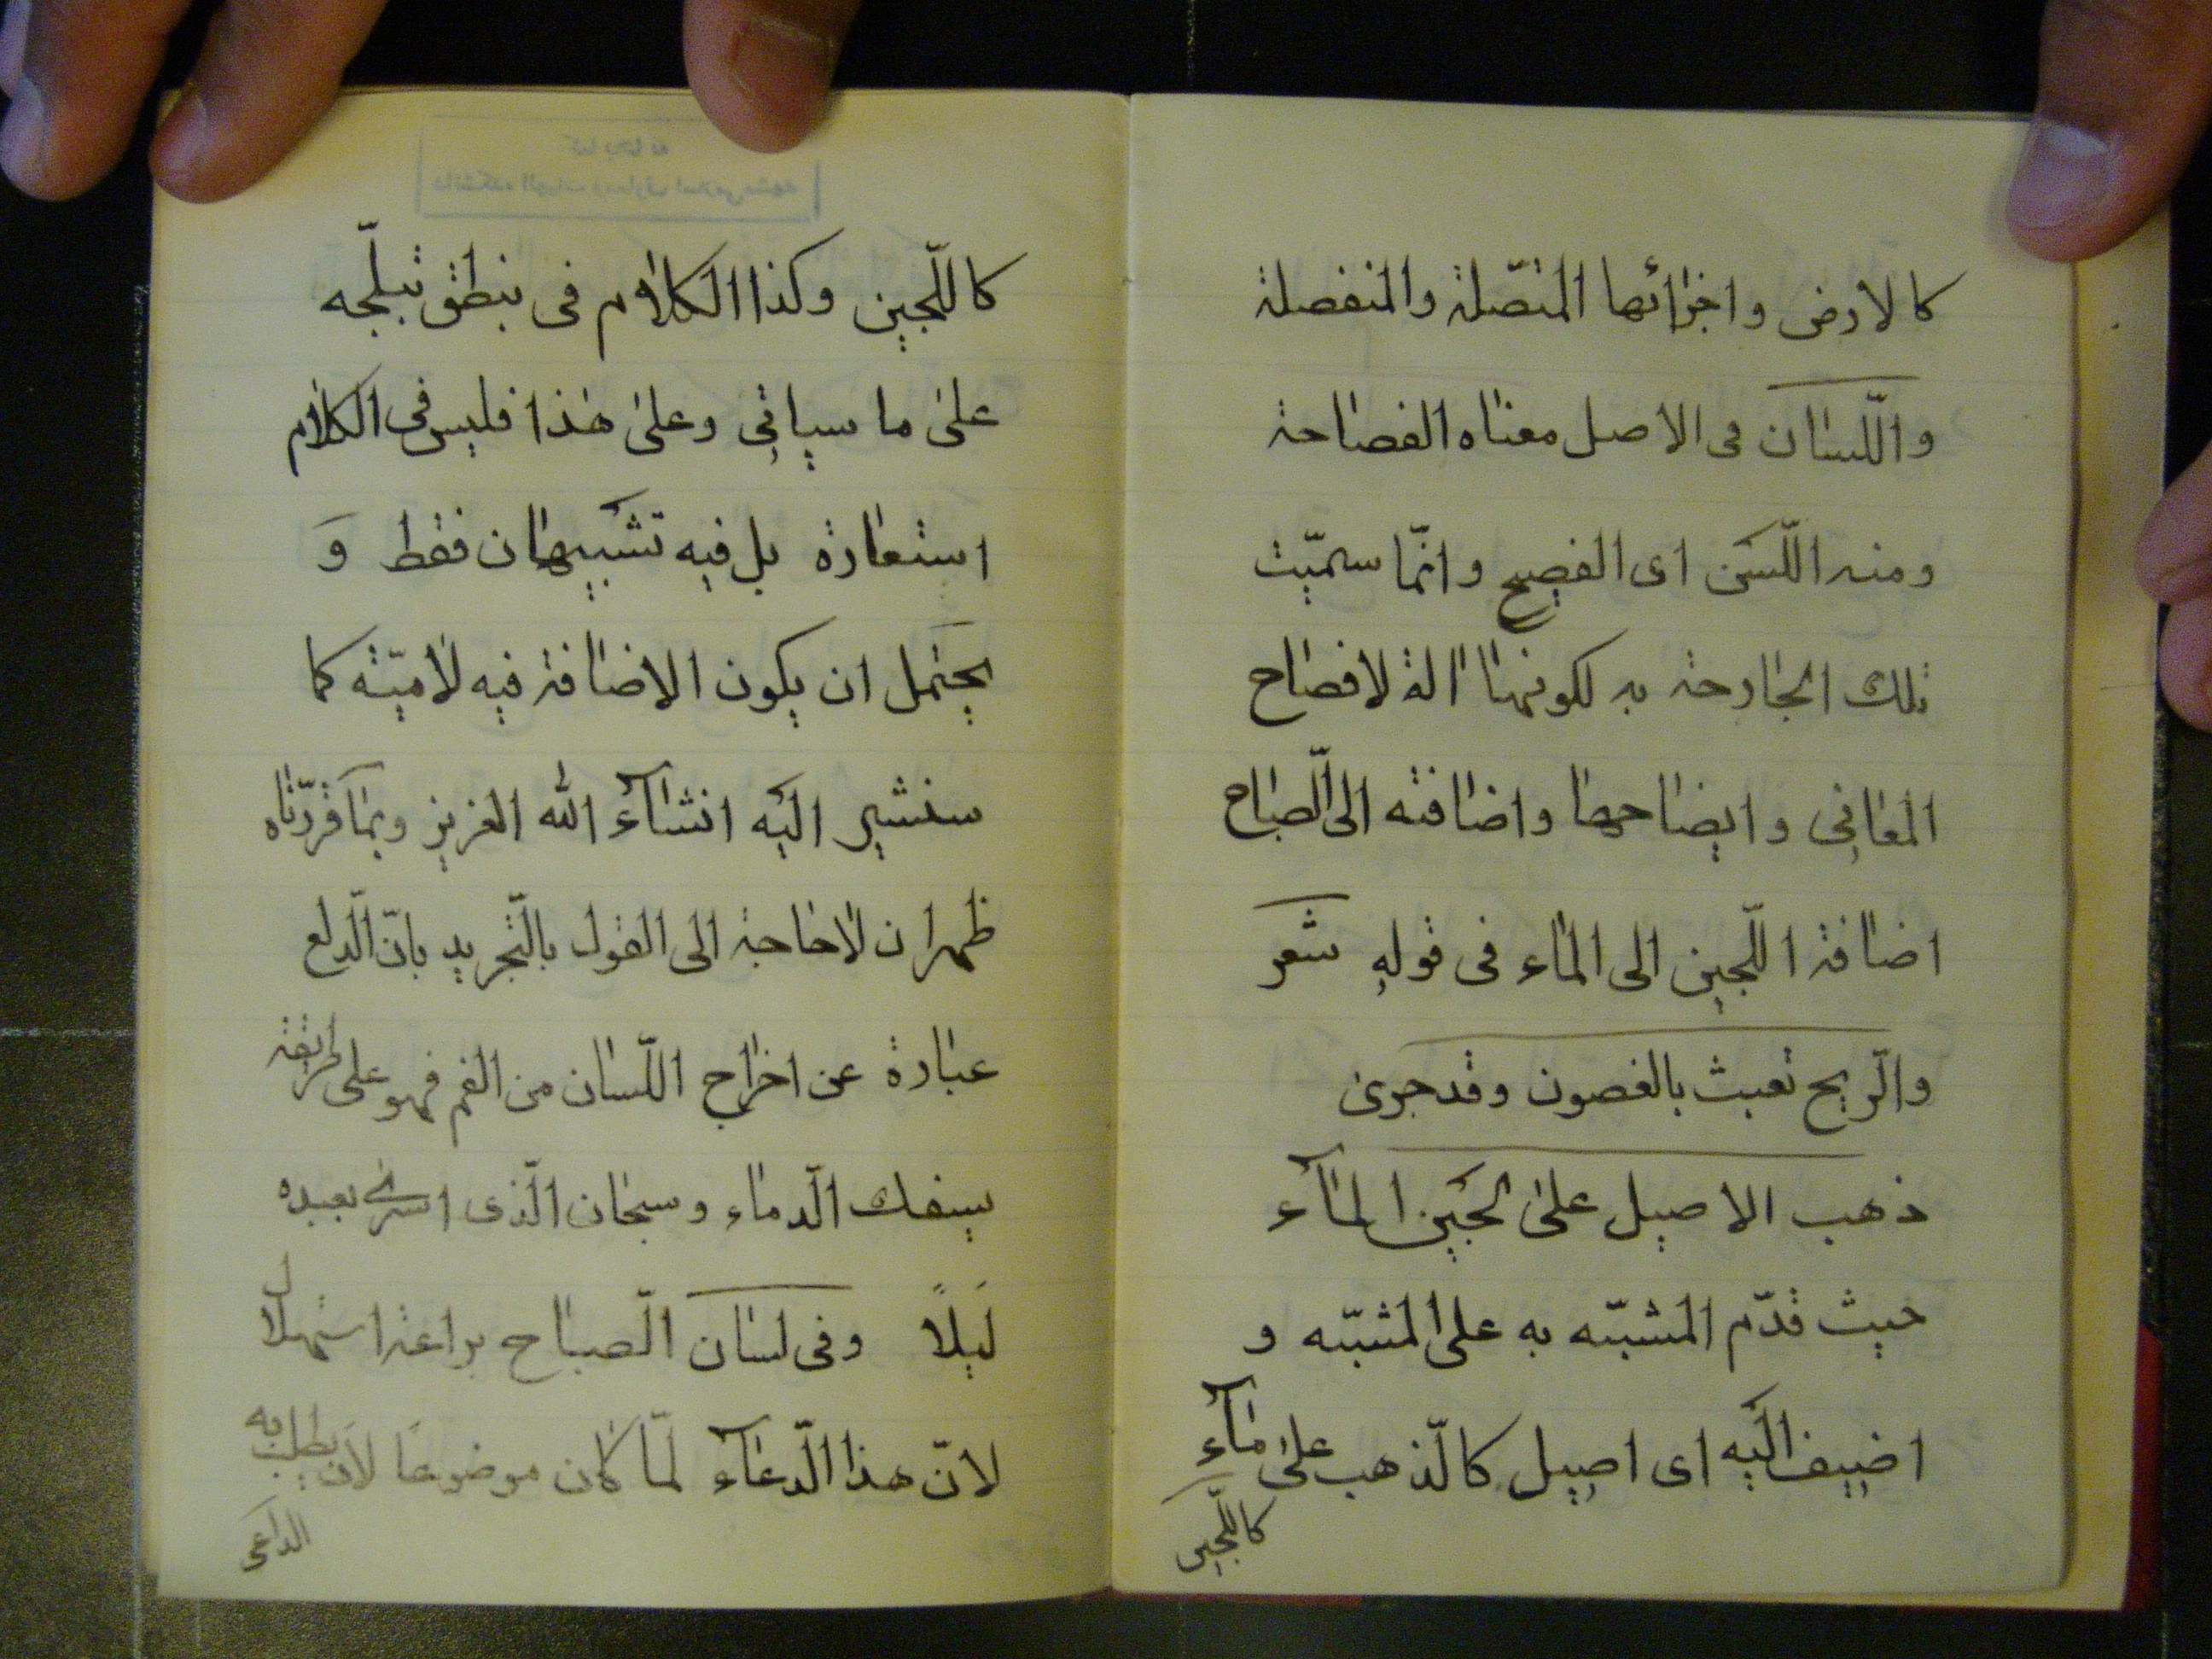 كالارض واجزائها المتّصلة والمنفصلة
واللّسان فى الاصل معناه الفصاحة
ومنه اللّسن اى الفصيح وانّما سمّيت
تلك الجارحة به لكونها الة لافصاح
المعانى وايضاحها واضافته الى الصّباح
اضافة اللّجين الى الماء فى قوله شعر
والرّيح تعبث بالغصون وقد جرى
ذهب الاصيل على لجين المآء
حيث قدّم المشبّه به على المشبّه و
اضيف اليه اى اصيل كالذّهب على مآء
كاللّجين
كاللّجين وكذا الكلام فى بنطق تبلّجه
على ما سياتى وعلى هذا فليس فى الكلام
استعارة بل فيه تشبيهان فقط وَ
يحتمل ان يكون الاضافة فيه لاميّة كما
سنشير اليه انشآء الله العزيز وبما قرّرناه
ظهر ان لا حاجة الى القول بالتّجريد بانّ الدّلع
عبارة عن اخراج اللّسان من الفم فهو على طريقة
يسفك الدّماء وسبحان الّذى اسرى بعبده
لَيلاً وفى لسان الصّباح براعة استهلال
لانّ هذا الدّعآء لمّا كان موضوعًا لاَن يطلب به
الداعى
كتابخانه
دانشكده الهيات ومعارف اسلامى مشهد